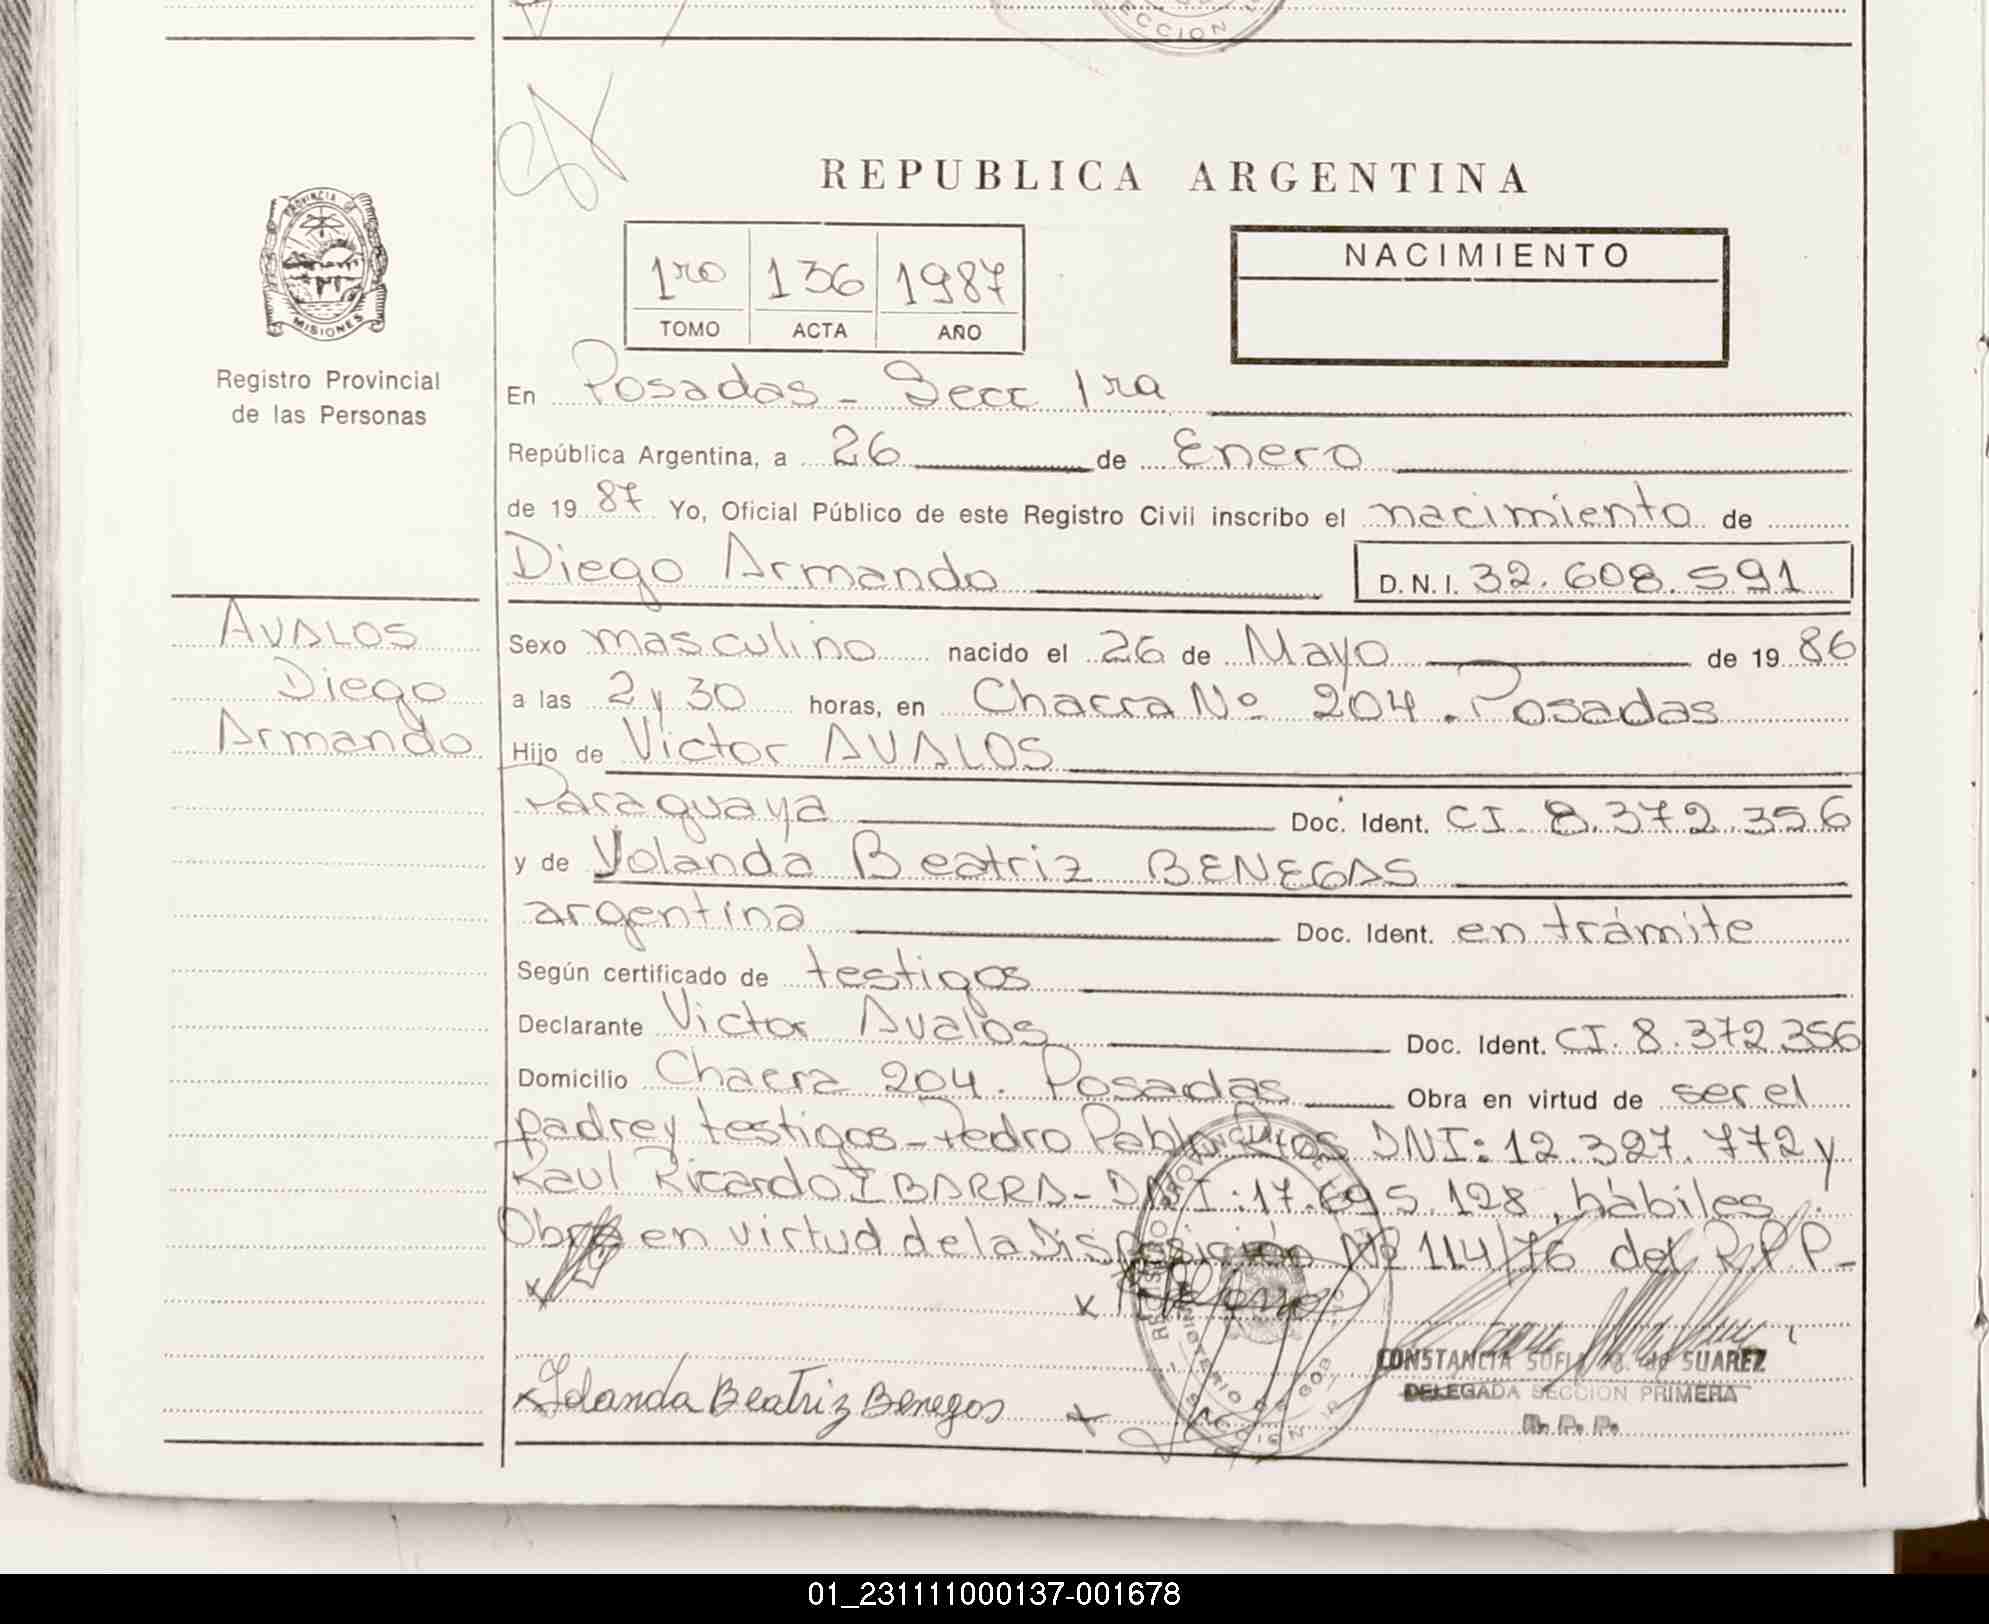 REPUBLICA ARGENTINA
PROVINCIA DE
MISIONES
Registro Provincial
de las Personas
1ro 136 1987
TOMO ACTA AÑO
NACIMIENTO
En Posadas - Secc 1ra
República Argentina, a 26 de Enero
de 1987 Yo, Oficial Público de este Registro Civil inscribo el nacimiento de
Diego Armando D.N.I. 32.608.591
AVALOS
Diego
Armando
Sexo masculino nacido el 26 de Mayo de 1986
a las 2 y 30 horas, en Chacra Nº 204. Posadas
Hijo de Victor AVALOS
Paraguaya Doc. Ident. CI. 8.372.356
y de Yolanda Beatriz BENEGAS
argentina Doc. Ident. en trámite
Según certificado de testigos
Declarante Victor Avalos Doc. Ident. CI. 8.372.356
Domicilio Chacra 204. Posadas Obra en virtud de ser el
padre y testigos - Pedro Pablo Rios DNI: 12.327.772 y
Raul Ricardo IBARRA - DNI: 17.695.128, hábiles.
Obra en virtud de la Disposición Nº 114/76 del R.P.P-
x
x
CONSTANCIA SOFIA de SUAREZ
DELEGADA SECCION PRIMERA
R. P. P.
x Yolanda Beatriz Benegas x
01_231111000137-001678